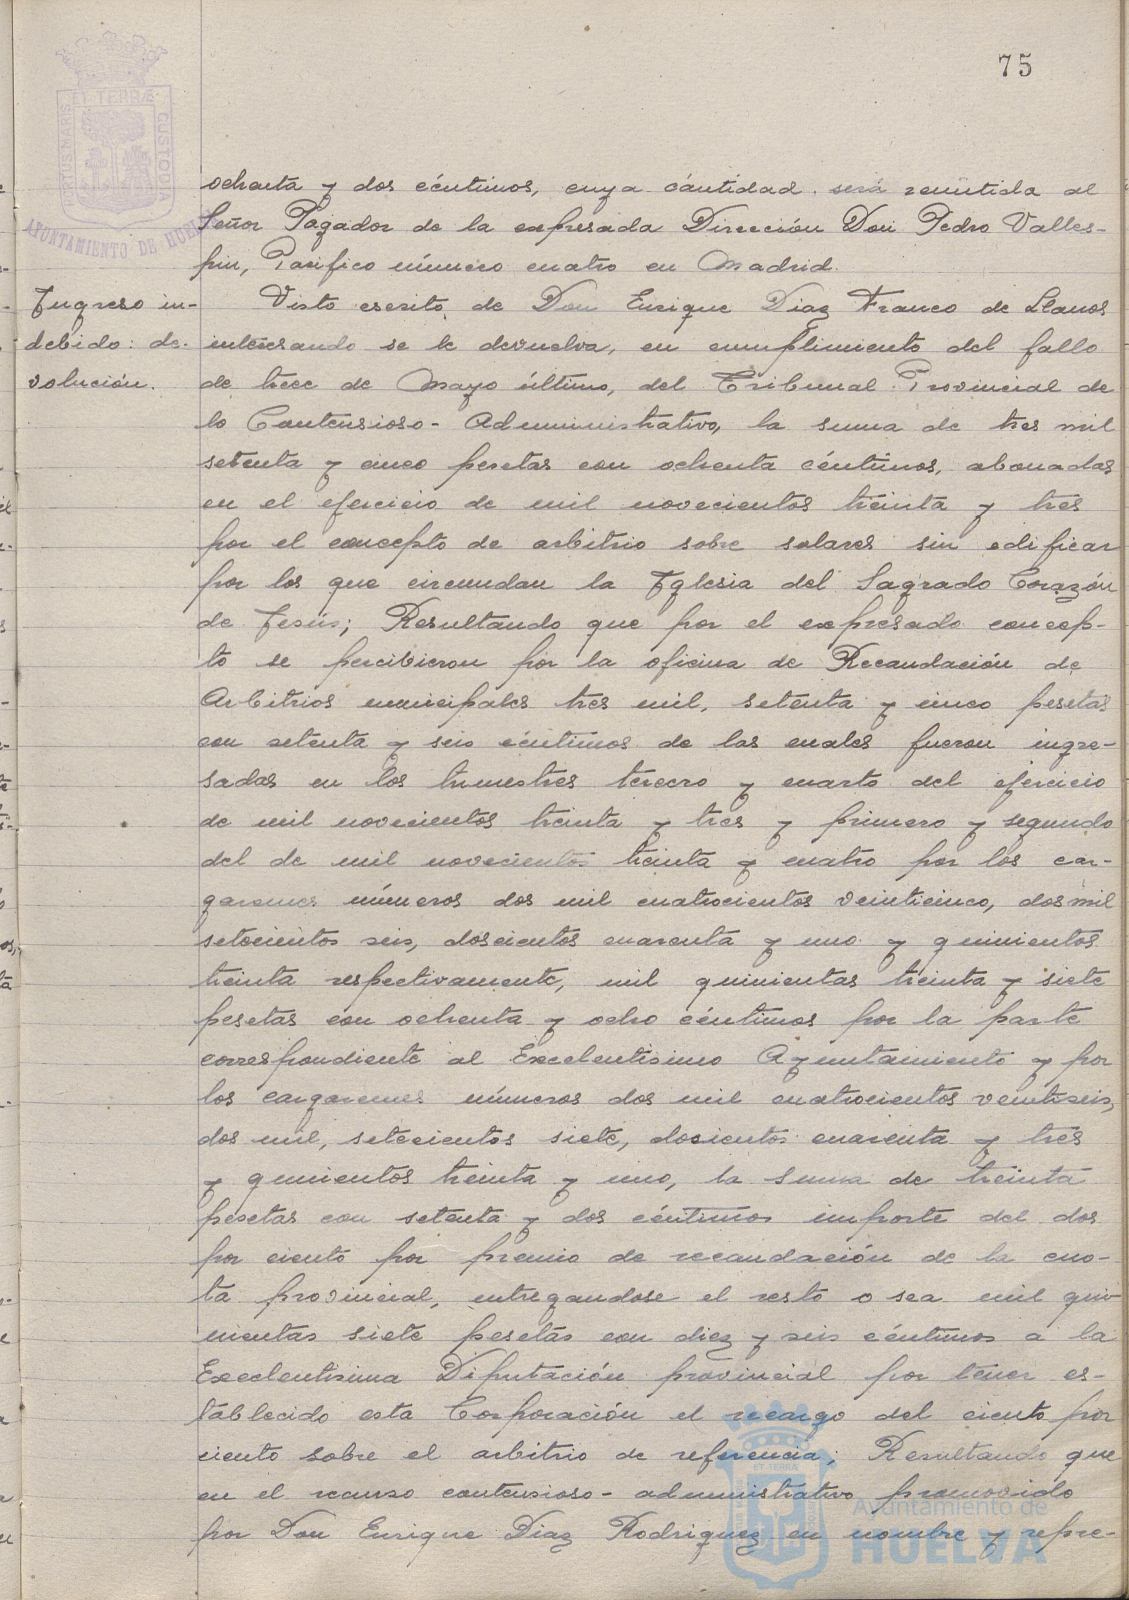 75
PORTUS MARIS ET TERRÆ CUSTODIA
AYUNTAMIENTO DE HUELVA
ochenta y dos céntimos, cuya cantidad será remitida al
Señor Pagador de la expresada Dirección Don Pedro Valles-
pin, Pacifico número cuatro en Madrid.
Ingreso in-
debido: de-
volución.
Visto escrito de Don Enrique Diaz Franco de Llanos
interesando se le devuelva, en cumplimiento del fallo
de trece de Mayo último, del Tribunal Provincial de
lo Contensioso-Administrativo, la suma de tres mil
setenta y cinco pesetas con ochenta céntimos, abonadas
en el ejercicio de mil novecientos treinta y tres
por el concepto de arbitrio sobre solares sin edificar
por los que circundan la Iglesia del Sagrado Corazón
de Jesús; Resultando que por el expresado concep-
to se percibieron por la oficina de Recaudación de
Arbitrios municipales tres mil, setenta y cinco pesetas
con setenta y seis céntimos de las cuales fueron ingre-
sadas en los trimestres tercero y cuarto del ejercicio
de mil novecientos treinta y tres y primero y segundo
del de mil novecientos treinta y cuatro por los car-
garemes números dos mil cuatrocientos veinticinco, dos mil
setecientos seis, doscientos cuarenta y uno y quinientos
treinta respectivamente, mil quinientas treinta y siete
pesetas con ochenta y ocho céntimos por la parte
correspondiente al Excelentísimo Ayuntamiento y por
los cargaremes números dos mil cuatrocientos veintiseis,
dos mil, setecientos siete, dosientos cuarenta y tres
y quinientos treinta y uno, la suma de treinta
pesetas con setenta y dos céntimos importe del dos
por ciento por premio de recaudación de la cuo-
ta provincial, entregandose el resto o sea mil qui-
nientas siete pesetas con diez y seis céntimos a la
Excelentisima Diputación provincial por tener es-
tablecido esta Corporación el recargo del ciento por
ciento sobre el arbitrio de referencia; Resultando que
en el recurso contensioso-administrativo promovido
por Don Enrique Diaz Rodriguez en nombre y repre-
Ayuntamiento de
HUELVA